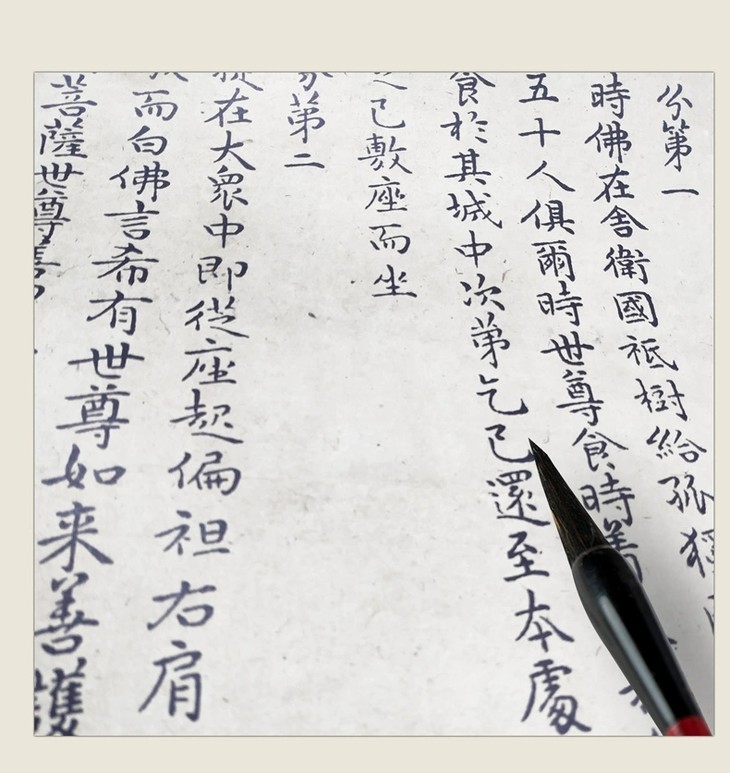 分第一
時佛在舍衛國祇樹給孤獨
五十人俱爾時世尊食時著
食於其城中次第乞已還至本處
已敷座而坐
第二
在大眾中即從座起偏袒右肩
而白佛言希有世尊如来善護
菩薩世尊善